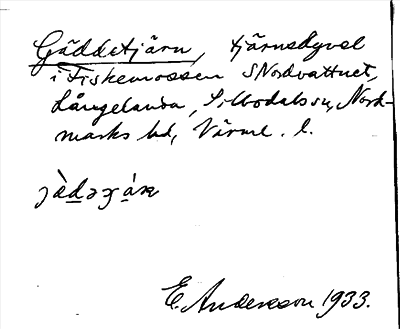 Gäddetjärn, tjärnsdyvel
i Fiskemossen S Nordvattnet,
Långelanda, Silbodals sn, Nord-
marks hd, Värml. l.
E. Andersson 1933.